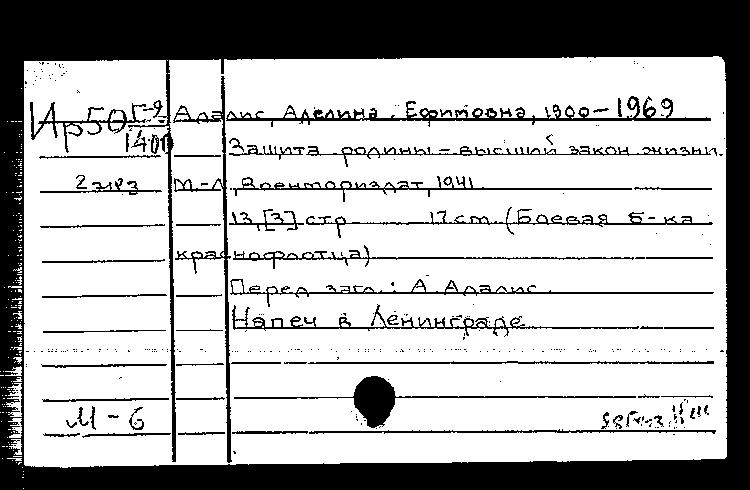 Ир50 Г-9 Адалис, Аделина Ефимовна, 1900-1969
1400
Защита родины - высший закон жизни.
2 экз М.-Л., Военмориздат, 1941.
13, [3] стр 17 см (Боевая б-ка
краснофлотца)
Перед загл.: А. Адалис.
Напеч в Ленинграде
М - 6